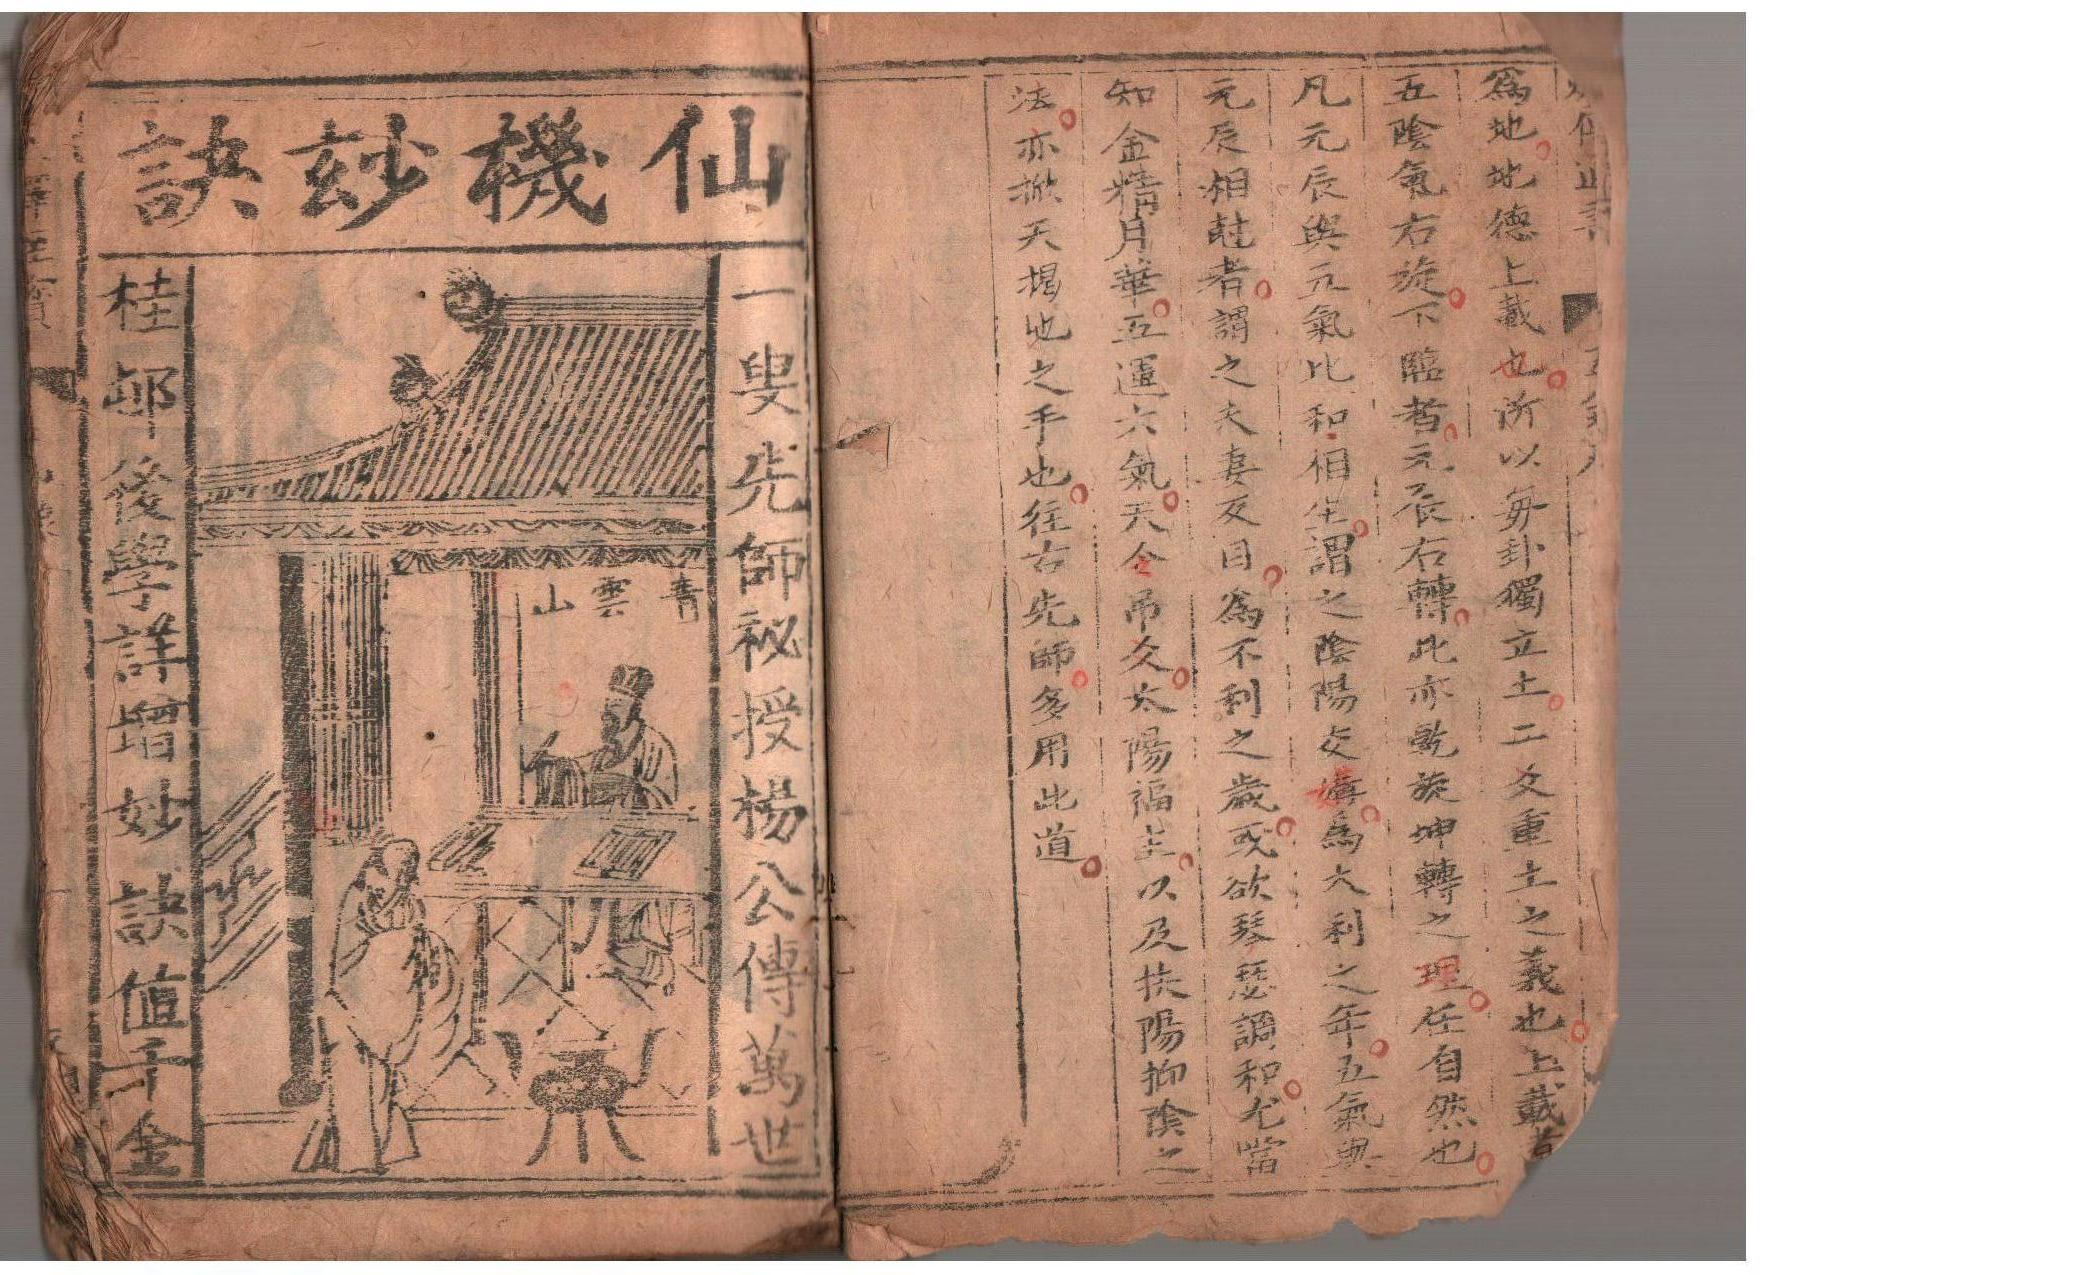 為地地德上載也所以毎卦獨立土二爻重土之義也上載者
五陰氣右旋下臨者元辰右轉此亦乾旋坤轉之理任自然也
凡元辰與元氣比和相生謂之陰陽交媾為大利之年五氣與
元辰相尅者謂之夫妻反目為不利之歲或欲琴瑟調和尤當
知金精月華五運六氣天令吊久太陽福主以及扶陽抑陰之
法亦掀天揭地之手也往古先師多用此道
仙機玅訣
一叟先師祕授楊公傳萬世
青雲山
桂邨後學詳增妙訣值千金